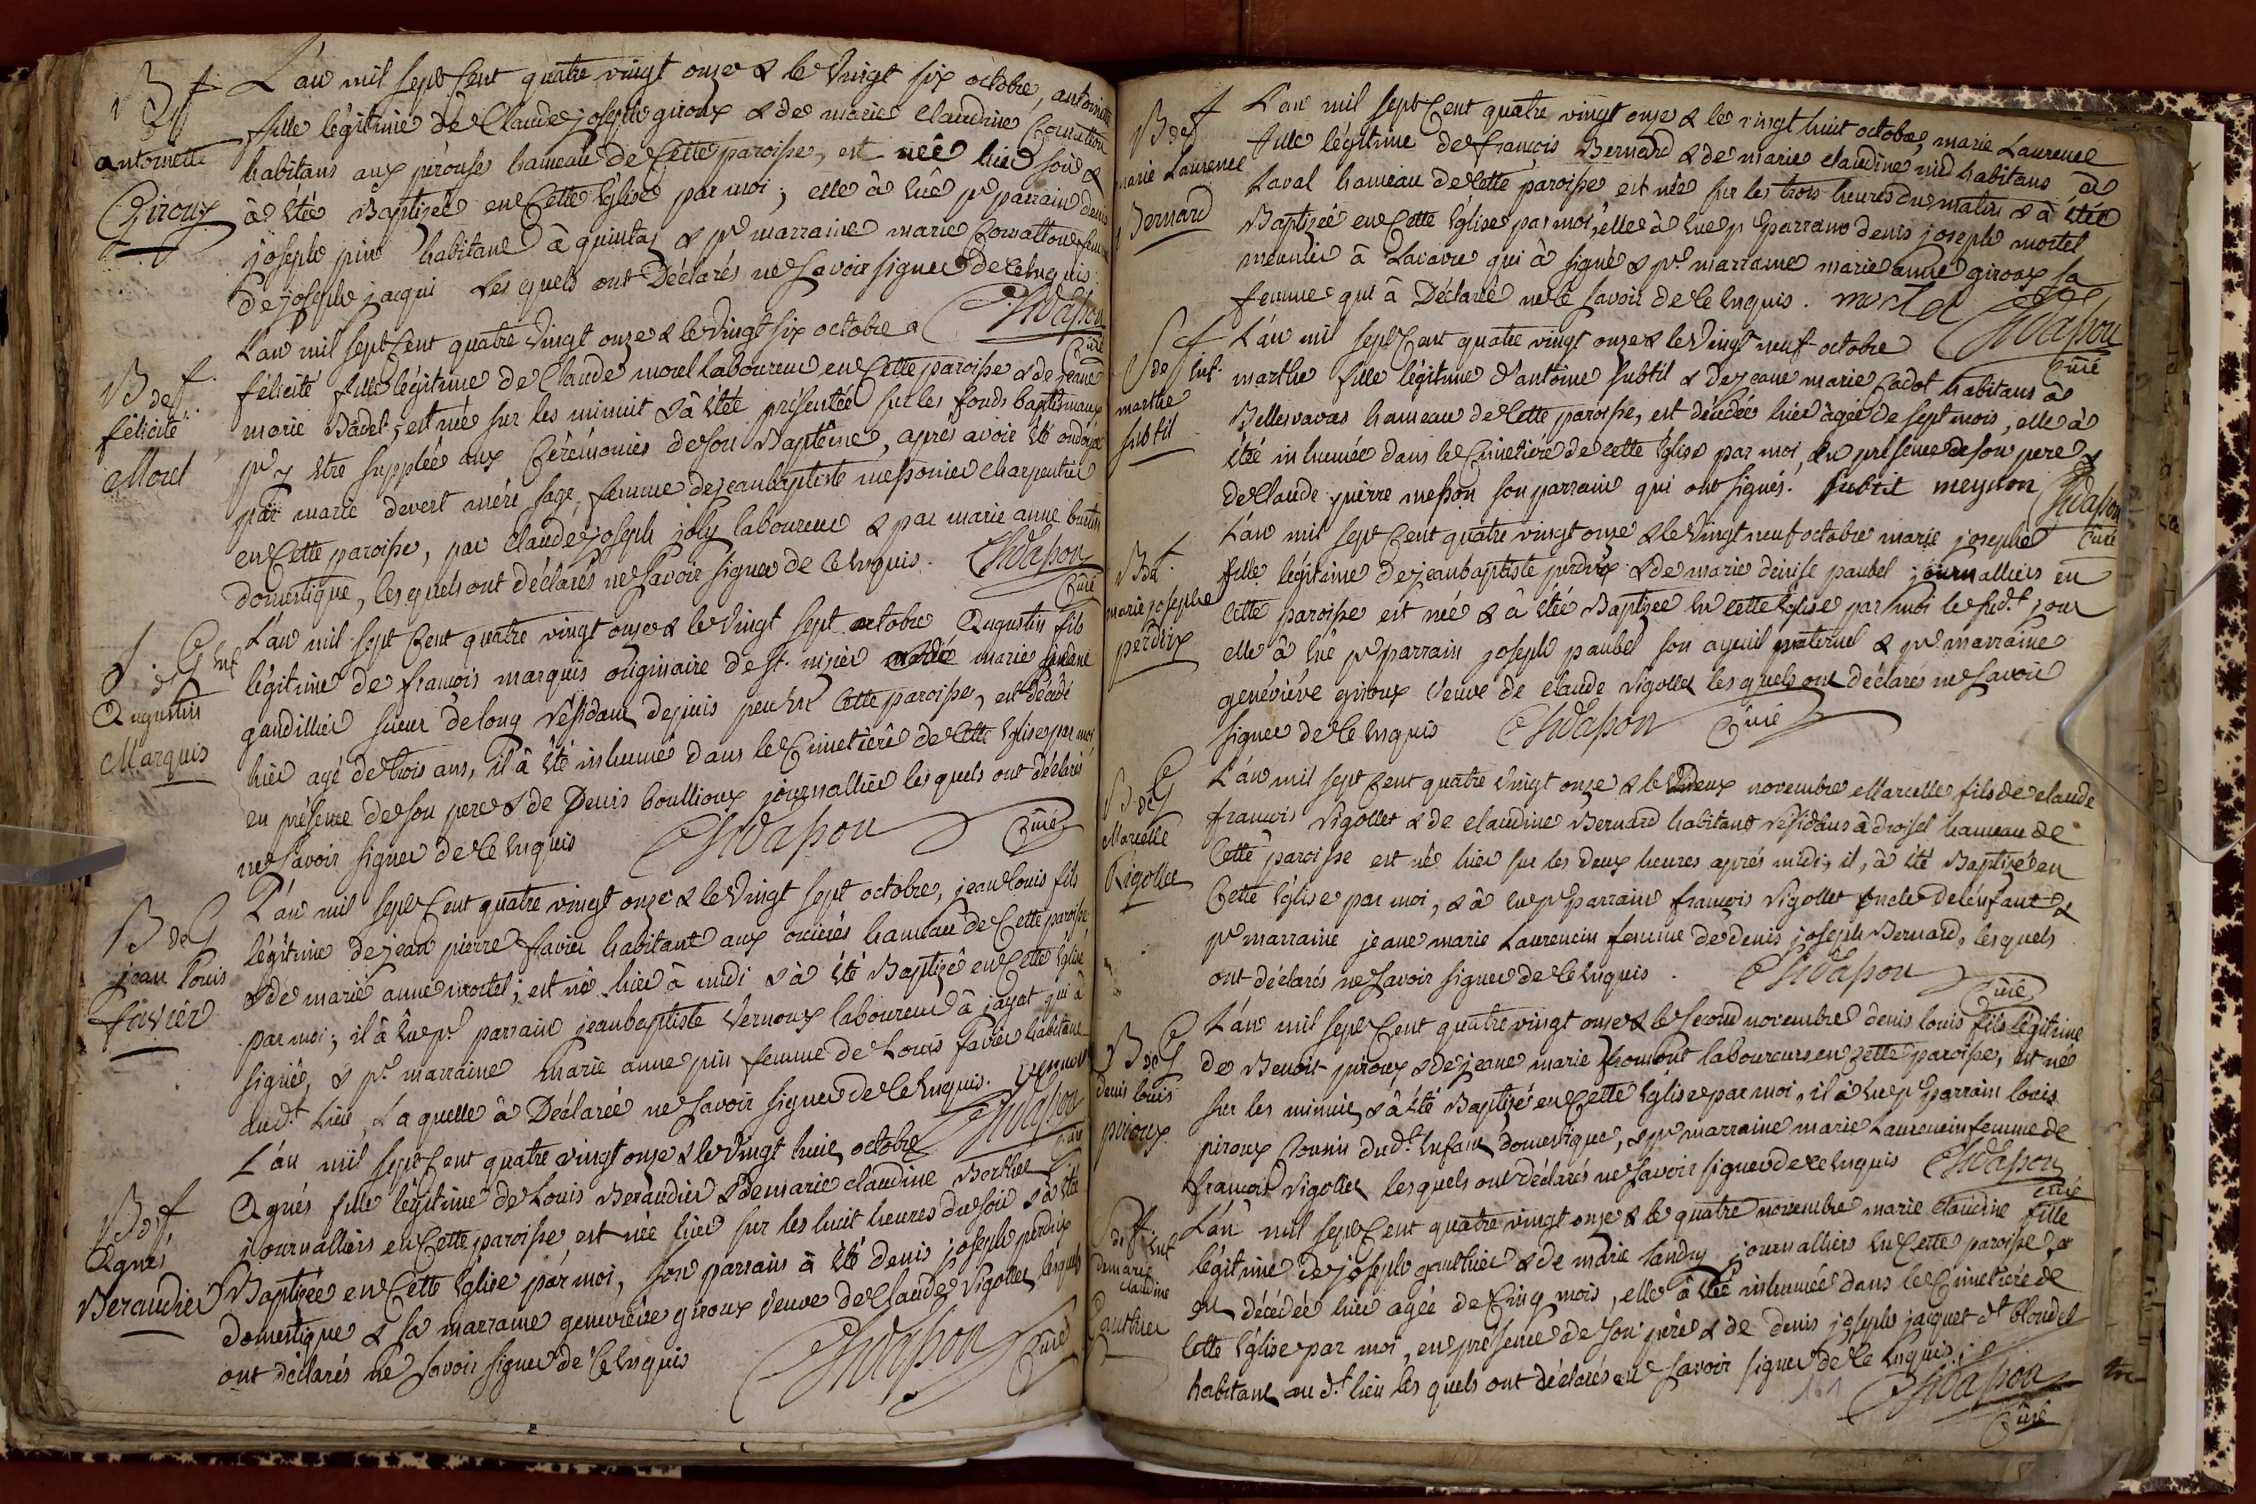 B f
antoinette
Giroux
L'an mil sept Cent quatre vingt onze & le vingt six octobre, antoinette
fille légitime de Claude joseph giroux & de marie Claudine
habitans aux pérouse hameau de Cette paroisse, est née hier soir &
à été Baptizée en Cette Eglise par moi; elle à eue pr parrain denis
joseph pin habitant à quintas & pr marraine marie Convatton femme
de joseph jacqui Les quels ont Déclarés ne Savoir signer de Ce enquis
Chvasson
Curé
B de f.
félicité
Morel
L'an mil sept Cent quatre vingt onze & le vingt six octobre
félicité fille légitime de Claude morel Laboureur en Cette paroisse & de jeane
marie Badet, est née sur les minuit & à été présentée sur les fonds baptismaux
pr y être supplée aux Cérémonies de son Baptême, aprés avoir été ondoyée
par marie devert mère sage, femme de jean baptiste messonier charpentier
en Cette paroisse, par Claude joseph joly laboureur & par marie anne
domestique, les quels ont déclarés ne Savoir signer de Ce enquis.
Chvasson
Curé
S. de G enf
Augustin
Marquis
L'an mil sept Cent quatre vingt onze & le vingt sept octobre Augustin fils
légitime de françois marquis originaire de st. nizier & de marie
gaudillier sieur de long résidant depuis peu en Cette paroisse, est décédé
hier agé de trois ans, il à été inhumé dans le Cimetière de Cette Eglise par moi
en présence de son pere & de Denis boullioux journallier les quels ont déclarés
ne Savoir signer de Ce enquis
Chvasson
Curé
B de G
jean Louis
favier
L'an mil sept Cent quatre vingt onze & le vingt sept octobre, jean Louis fils
légitime de jean pierre favier habitant aux hameau de Cette paroisse
& de marie anne mortel; est né hier à midi & à été Baptizé en Cette Eglise
par moi; il à eue pr. parrain jean baptiste Vernoux laboureur à jayat qui à
signé, & pr. marraine marie anne pin femme de Louis favier habitant
au dt. Lieu, La quelle à Déclarée ne Savoir signer de Ce enquis. vernoux
Chvasson
Curé
B de f
Agnés
Beraudier
L'an mil sept Cent quatre vingt onze & le vingt huit octobre
Agnés fille légitime de Louis Beraudier & de marie Claudine Berthet
journalliers en Cette paroisse, est née hier sur les huit heures du soir & à été
Baptizée en Cette Eglise par moi, son parrain à été denis joseph perdrix
domestique & sa marraine geneviève giroux veuve de Claude Vigollet lesquels
ont déclarés ne Savoir signer de Ce enquis
Chvasson
Curé
B de f
marie Laurence
Bernard
L'an mil sept Cent quatre vingt onze & le vingt huit octobre, marie Laurence
fille légitime de françois Bernard & de marie claudine nid habitans à
Laval hameau de Cette paroisse est née sur les trois heures du matin & à étée
Baptizée en Cette Eglise par moi, elle à eue pr parrain denis joseph mortel
meunier à Lavavre qui à signé & pr. marraine marie anne giroux sa
femme qui à Déclarée ne le savoir de Ce enquis. mortel
Chvasson
Curé
S de f enf.
marthe
subtil
L'an mil sept Cent quatre vingt onze & le vingt neuf octobre
marthe fille légitime d'antoine subtil & de jeane marie Cadot habitans à
Bellesvavres hameau de Cette paroisse, est décédée hier agée de sept mois, elle à
étée inhumée dans le Cimetiere de cette Eglise par moi, en présence de son pere &
de Claude pierre messon son parrain qui ont signés. Subtil meysson
Chvasson
Curé
B de f.
marie josephe
perdrix
L'an mil sept Cent quatre vingt onze & le vingt neuf octobre marie josephe
fille légitime de jean baptiste perdrix & de marie denise paubel journalliers en
Cette paroisse est née & à étée Baptizée en cette Eglise par moi le susdt. jour
elle à eue pr parrain joseph paubel son ayeuil maternel & pr marraine
geneviève giroux veuve de claude vigollet les quels ont déclarés ne Savoir
signer de Ce enquis
Chvasson Curé
B de G
Marcelle
Vigollet
L'an mil sept Cent quatre vingt onze & le deux novembre Marcelle fils de claude
françois Vigollet & de claudine Bernard habitans résidans à droisel hameau de
Cette paroisse est né hier sur les deux heures aprés midi, il, à été Baptizé en
Cette Eglise par moi, & à eue pr parrain françois Vigollet oncle de l'enfant &
pr marraine jeane marie Laurencin femme de denis joseph Bernard, les quels
ont déclarés ne Savoir signer de Ce enquis.
Chvasson
Curé
B de G
denis louis
piroux
L'an mil sept Cent quatre vingt onze & le second novembre denis louis fils légitime
de Benoit piroux & de jeane marie fromont laboureurs en Cette paroisse, est né
sur les minuit, & à été Baptizé en Cette Eglise par moi, il à eue pr parrain louis
piroux Cousin du dt. Enfant, domestique, & pr marraine marie Laurencin femme de
françois Vigollet les quels ont déclarés ne Savoir signer de Ce enquis
Chvasson
Curé
S de f. enf
de marie
claudine
Gauthier
L'an mil sept Cent quatre vingt onze & le quatre novembre marie claudine fille
légitime de joseph gauthier & de marie landry journalliers en Cette paroisse
est décédée hier agée de Cinq mois, elle à étée inhumée dans le Cimetière de
Cette Eglise par moi, en présence de son père & de denis joseph jacquet dt. blondel
habitant au dt. lieu les quels ont déclarés ne Savoir signer de Ce enquis.
Chvasson
Curé